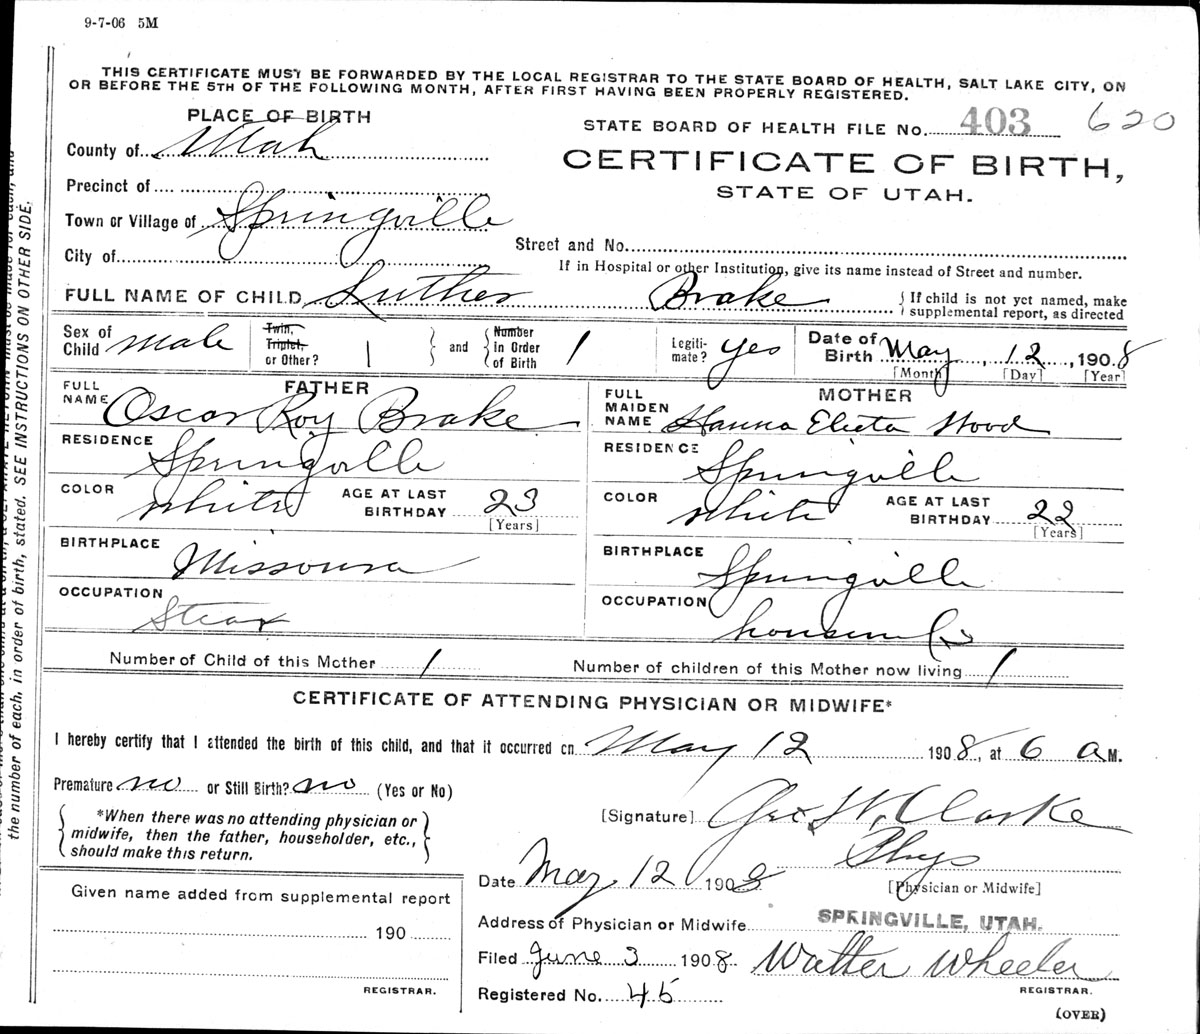 9-7-06 5M
THIS CERTIFICATE MUST BE FORWARDED BY THE LOCAL REGISTRAR TO THE STATE BOARD OF HEALTH, SALT LAKE CITY, ON
OR BEFORE THE 5TH OF THE FOLLOWING MONTH, AFTER FIRST HAVING BEEN PROPERLY REGISTERED.
PLACE OF BIRTH
STATE BOARD OF HEALTH FILE No. 403 620
County of Utah
CERTIFICATE OF BIRTH,
STATE OF UTAH.
Precinct of
Town or Village of Springville
Street and No.
City of
If in Hospital or other Institution, give its name instead of Street and number.
FULL NAME OF CHILD Luther Brake
If child is not yet named, make
supplemental report, as directed
Sex of Child male
Twin, Triplet, or Other? 1
and
Number in Order of Birth 1
Legiti-mate? yes
Date of Birth May, 12, 1908
[Month] [Day] [Year]
FATHER
FULL NAME Oscar Roy Brake
RESIDENCE Springville
COLOR white AGE AT LAST BIRTHDAY 23
[Years]
BIRTHPLACE Missouri
OCCUPATION
MOTHER
FULL MAIDEN NAME Hanna Electa Wood
RESIDENCE Springville
COLOR white AGE AT LAST BIRTHDAY 22
[Years]
BIRTHPLACE Springville
OCCUPATION
Number of Child of this Mother 1 Number of children of this Mother now living 1
CERTIFICATE OF ATTENDING PHYSICIAN OR MIDWIFE*
I hereby certify that I attended the birth of this child, and that it occurred on May 12 1908, at 6 a M.
Premature no or Still Birth? no (Yes or No)
*When there was no attending physician or
midwife, then the father, householder, etc.,
should make this return.
[Signature] Geo W. Clarke
Phys
[Physician or Midwife]
Date May 12 1908
Address of Physician or Midwife SPRINGVILLE, UTAH.
Filed June 3 1908 Walter Wheeler
REGISTRAR.
Registered No. 45
(OVER)
Given name added from supplemental report
190
REGISTRAR.
the number of each, in order of birth, stated. SEE INSTRUCTIONS ON OTHER SIDE.